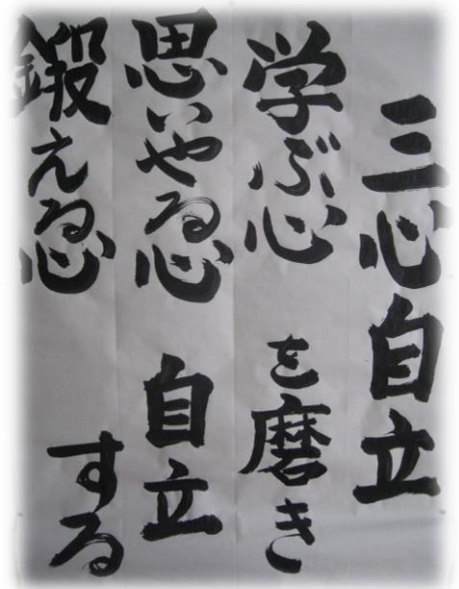 三心自立
学ぶ心 を磨き
思いやる心 自立
鍛える心 する